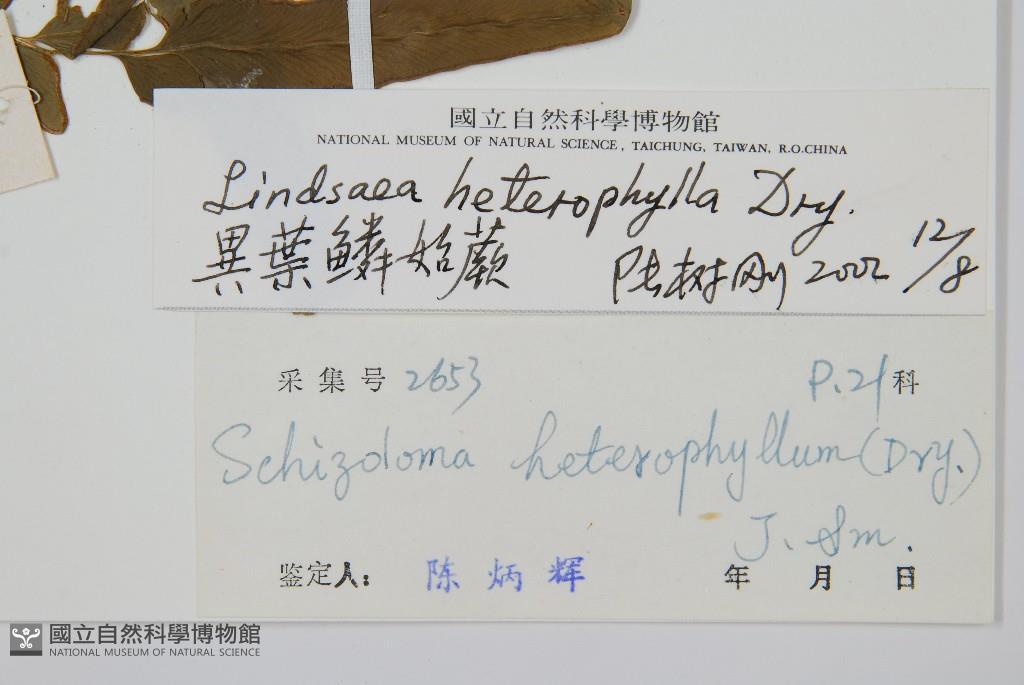 國立自然科學博物館
NATIONAL MUSEUM OF NATURAL SCIENCE, TAICHUNG, TAIWAN, R.O.CHINA
Lindsaea heterophylla Dry.
異葉鱗始蕨 陆树刚 2002 12/8
采集号 2653 P.21科
Schizoloma heterophyllum (Dry.)
J. Sm.
鉴定人: 陈炳辉 年 月 日
國立自然科學博物館
NATIONAL MUSEUM OF NATURAL SCIENCE